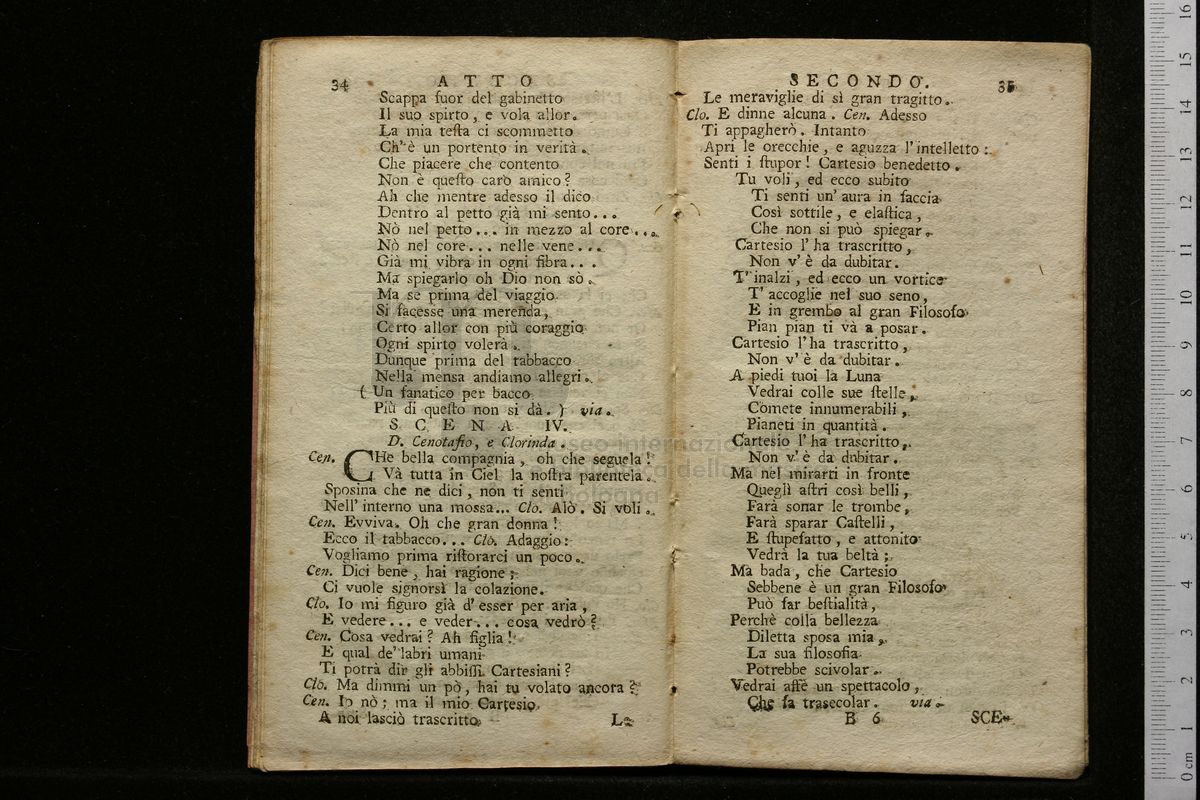 34 ATTO
Scappa fuor del gabinetto
Il suo spirto, e vola allor.
La mia teſta ci scommetto
Ch' è un portento in verità.
Che piacere che contento
Non è queſto caro amico?
Ah che mentre adesso il dico
Dentro al petto già mi sento...
Nò nel petto... in mezzo al core...
Nò nel core... nelle vene...
Già mi vibra in ogni fibra...
Ma spiegarlo oh Dio non sò.
Ma se prima del viaggio
Si facesse una merenda,
Certo allor con più coraggio
Ogni spirto volerà.
Dunque prima del tabbacco
Nella mensa andiamo allegri.
( Un fanatico per bacco
Più di queſto non si dà. ) via.
SCENA IV.
D. Cenotafio, e Clorinda.
Cen. CHe bella compagnia, oh che seguela!
Và tutta in Ciel la noſtra parentela.
Sposina che ne dici, non ti senti
Nell' interno una mossa... Clo. Alò. Si voli.
Cen. Evviva. Oh che gran donna!
Ecco il tabbacco... Clo. Adaggio:
Vogliamo prima riſtorarci un poco.
Cen. Dici bene, hai ragione;
Ci vuole signorsì la colazione.
Clo. Io mi figuro già d' esser per aria,
E vedere... e veder... cosa vedrò?
Cen. Cosa vedrai? Ah figlia!
E qual de' labri umani
Ti potrà dir gli abbiſſi Cartesiani?
Clo. Ma dimmi un pò, hai tu volato ancora?
Cen. Io nò; ma il mio Cartesio
A noi lasciò trascritto
Le
SECONDO. 35
Le meraviglie di sì gran tragitto.
Clo. E dinne alcuna. Cen. Adesso
Ti appagherò. Intanto
Apri le orecchie, e aguzza l' intelletto:
Senti i ſtupor! Cartesio benedetto.
Tu voli, ed ecco subito
Ti senti un' aura in faccia
Così sottile, e elaſtica,
Che non si può spiegar.
Cartesio l' ha trascritto,
Non v' è da dubitar.
T' inalzi, ed ecco un vortice
T' accoglie nel suo seno,
E in grembo al gran Filosofo
Pian pian ti và a posar.
Cartesio l' ha trascritto,
Non v' è da dubitar.
A piedi tuoi la Luna
Vedrai colle sue ſtelle,
Comete innumerabili,
Pianeti in quantità.
Cartesio l' ha trascritto,
Non v' è da dubitar.
Ma nel mirarti in fronte
Quegli aſtri così belli,
Farà sonar le trombe,
Farà sparar Caſtelli,
E ſtupefatto, e attonito
Vedrà la tua beltà;
Ma bada, che Cartesio
Sebbene è un gran Filosofo
Può far beſtialità,
Perchè colla bellezza
Diletta sposa mia,
La sua filosofia
Potrebbe scivolar.
Vedrai affè un spettacolo,
Che fa trasecolar. via.
B 6 SCE-